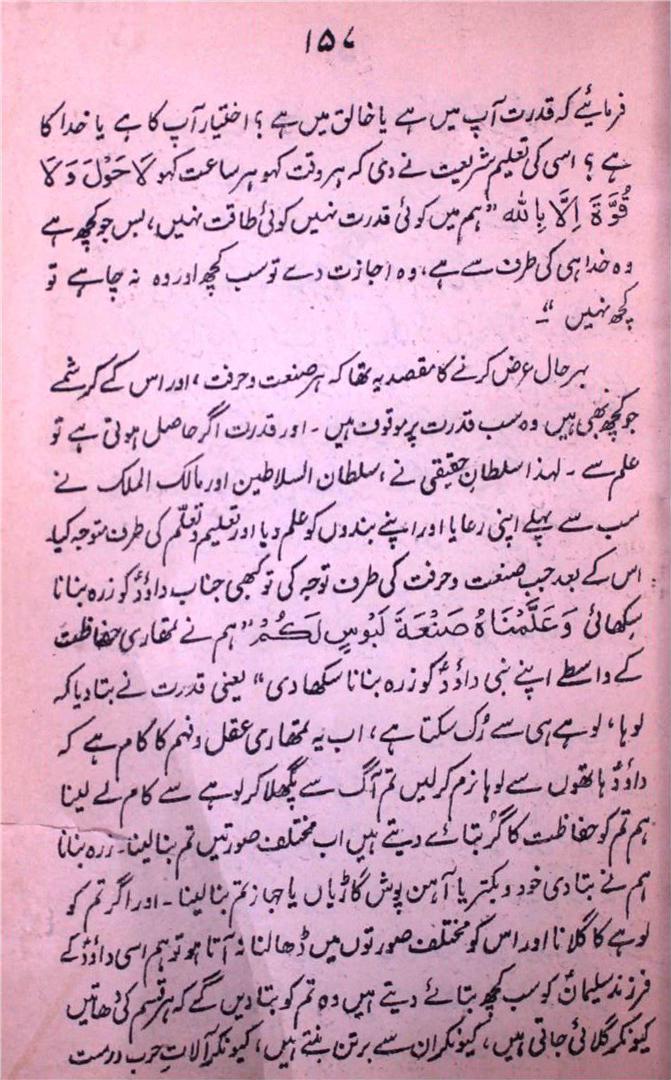 ۱۵۷
فرمائیے کہ قدرت آپ میں ہے یا خالق میں ہے ؟ اختیار آپ کا ہے یا خدا کا
ہے ؟ اسی کی تعلیم شریعت نے دی کہ ہر وقت کہو ہر ساعت کہو لَا حَوْلَ وَلَا
قُوَّةَ اِلَّا بِاللّٰه ”ہم میں کوئی قدرت نہیں کوئی طاقت نہیں، بس جو کچھ ہے
وہ خدا ہی کی طرف سے ہے، وہ اجازت دے تو سب کچھ اور وہ نہ چاہے تو
کچھ نہیں “۔
بہرحال عرض کرنے کا مقصد یہ تھا کہ ہر صنعت و حرفت ، اور اس کے کرشمے
جو کچھ بھی ہیں وہ سب قدرت پر موقوف ہیں ۔ اور قدرت اگر حاصل ہوتی ہے تو
علم سے ۔ لہٰذا سلطانِ حقیقی نے ، سلطان السلاطین اور مالک الملک نے
سب سے پہلے اپنی رعایا اور اپنے بندوں کو علم دیا اور تعلیم و تعلّم کی طرف متوجہ کیا۔
اس کے بعد جب صنعت و حرفت کی طرف توجہ کی تو کبھی جناب داؤدؑ کو زرہ بنانا
سکھائی وَعَلَّمْنَاهُ صَنْعَةَ لَبُوْسٍ لَّكُمْ ”ہم نے تمھاری حفاظت
کے واسطے اپنے نبی داؤدؑ کو زرہ بنانا سکھا دی“ یعنی قدرت نے بتا دیا کہ
لوہا ، لوہے ہی سے رُک سکتا ہے ، اب یہ تمھاری عقل و فہم کا کام ہے کہ
داؤدؑ ہاتھوں سے لوہا نرم کر لیں تم آگ سے پگھلا کر لوہے سے کام لے لینا
ہم تم کو حفاظت کا گُر بتائے دیتے ہیں اب مختلف صورتیں تم بنا لینا۔ زرہ بنانا
ہم نے بتا دی خود و بکتر یا آہن پوش گاڑیاں یا جہاز تم بنا لینا ۔ اور اگر تم کو
لوہے کا گلانا اور اس کو مختلف صورتوں میں ڈھالنا نہ آتا ہو تو ہم اسی داؤدؑ کے
فرزند سلیمانؑ کو سب کچھ بتائے دیتے ہیں وہ تم کو بتا دیں گے کہ ہر قسم کی دھاتیں
کیونکر گلائی جاتی ہیں ، کیونکر ان سے برتن بنتے ہیں ، کیونکر آلاتِ حرب درست